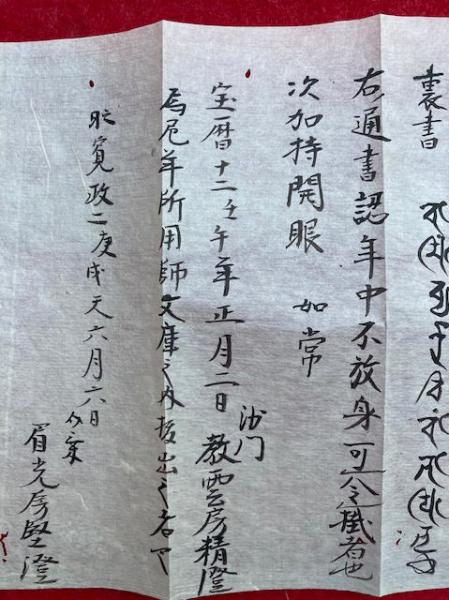 裏書
右通書認年中不放身可令掛者也
次加持開眼 如常
宝暦十二壬午年正月二日 沙門 教雲房精澄
年所用師文庫之内
寛政二庚戌天六月六日
眉光房堅澄